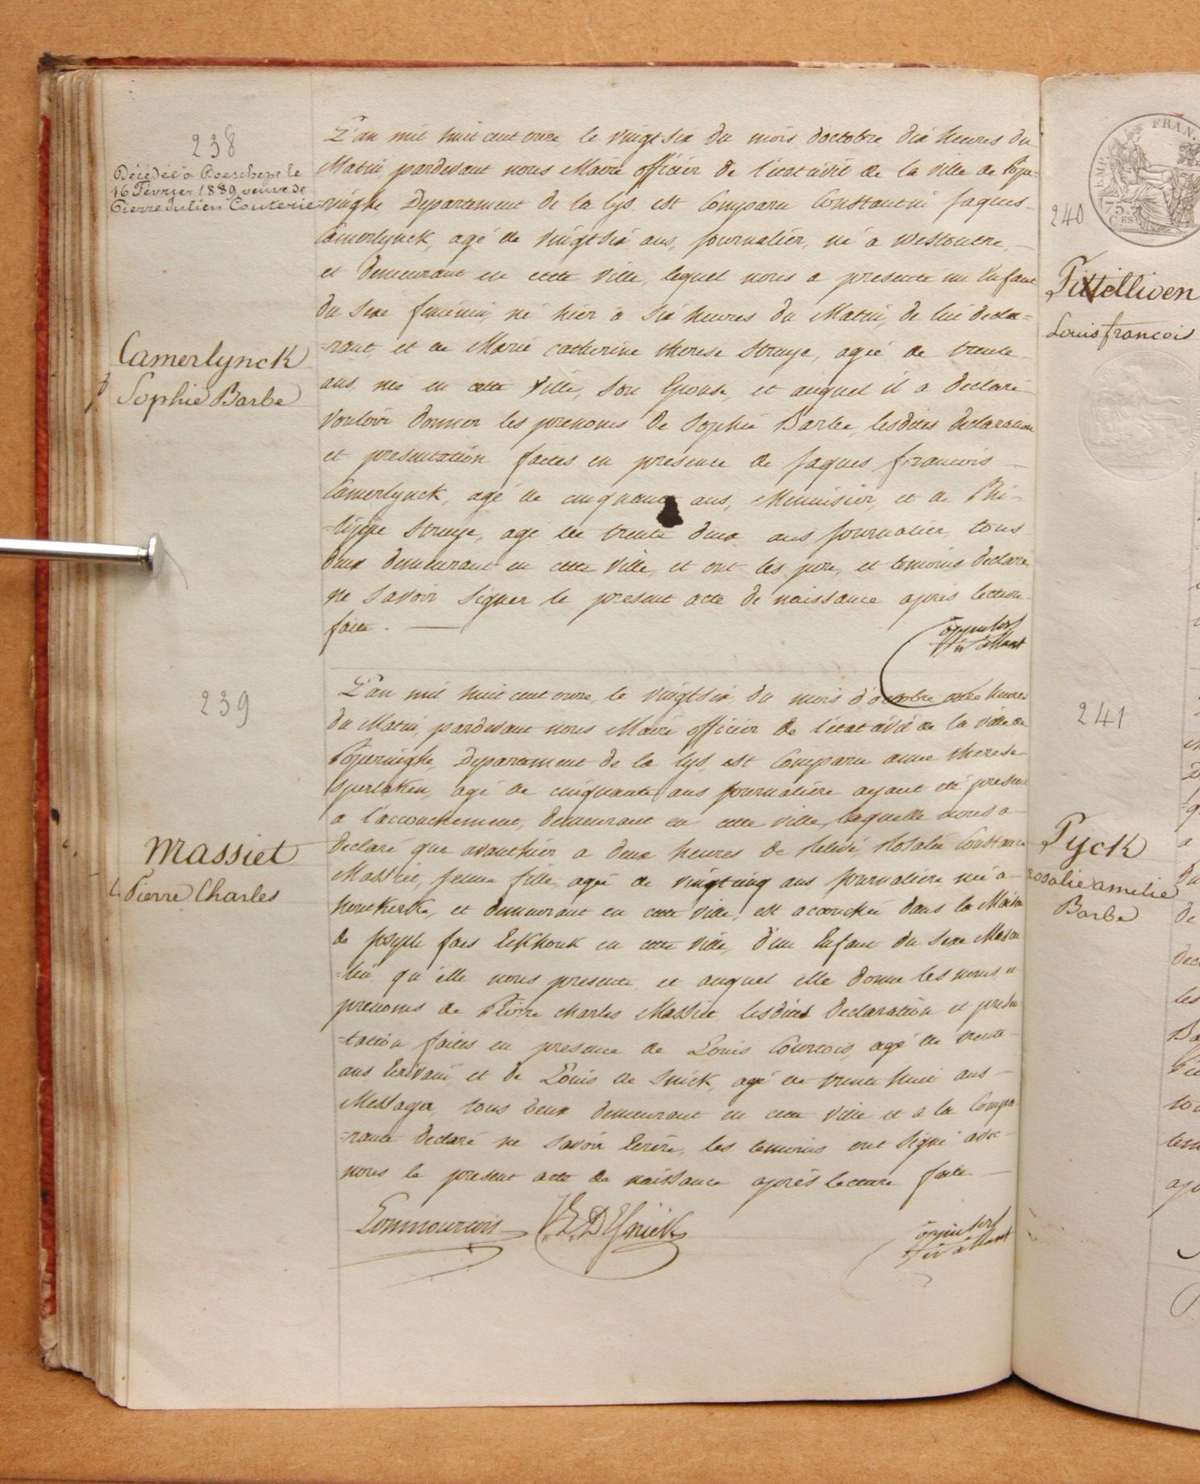 238
Décédée à Boeschepe le
16 Février 1889 veuve de
Pierre Julien Couterie
Camerlynck
Sophie Barbe
L'an mil huit cent onze le vingtsix du mois d'octobre dix heures du
Matin pardevant nous Maire officier de l'état civil de la ville de Pope-
-ringhe Departement de la Lys, est Comparu Constantin Jaques
Camerlynck, agé de vingtsix ans, journalier, né a Westoutre,
et demeurant en cette ville, lequel nous a presenté un Enfant
du sexe feminin, né hier à six heures du Matin, de lui decla-
-rant, et de Marie catherine therese Struye, agée de trente
ans, née en cette ville, son Epouse, et auquel il a declaré
vouloir donner les prenoms de Sophie Barbe, lesdites declaration
et presentation faites en presence de Jaques francois
Camerlynck, agé de cinquante ans, Menuisier, et de Phi-
-lippe Struye, agé de trente deux ans journalier, tous
deux demeurant en cette ville, et ont les pere, et temoins declaré
ne savoir signer le present acte de naissance après lecture
faite.
239
Massiet
Pierre Charles
L'an mil huit cent onze, le vingtsix du mois d'octobre onze heures
du Matin, pardevant nous Maire officier de l'état civil de la ville de
Poperinghe, Departement de la Lys, est Comparu anne therese
agé de cinquante ans journalière ayant été presente
a l'accouchement, demeurant en cette ville, laquelle nous a
declaré que avanthier a deux heures de relevé, Rosalie Constance
Massiet, jeune fille, agée de vingtcinq ans journalière née à
et demeurant en cette ville, est accouchée dans la Maison
de Joseph fois en cette ville, d'un Enfant du sexe Mascu
-lin qu'elle nous presente, et auquel elle donne les noms, et
prenoms de Pierre charles Massiet lesdites declaration et presen
-tation faites en presence de Louis Courtois, agé de trente
ans Ecrivain et de Louis de Snick, agé de trente huit ans
Messager, tous deux demeurant en cette ville et a la Compa
-rante declaré ne savoir Ecrire, les temoins ont signé avec
nous le present acte de naissance après lecture faite
240
Louis francois
241
Pyck
rosalie amelie
Barbe